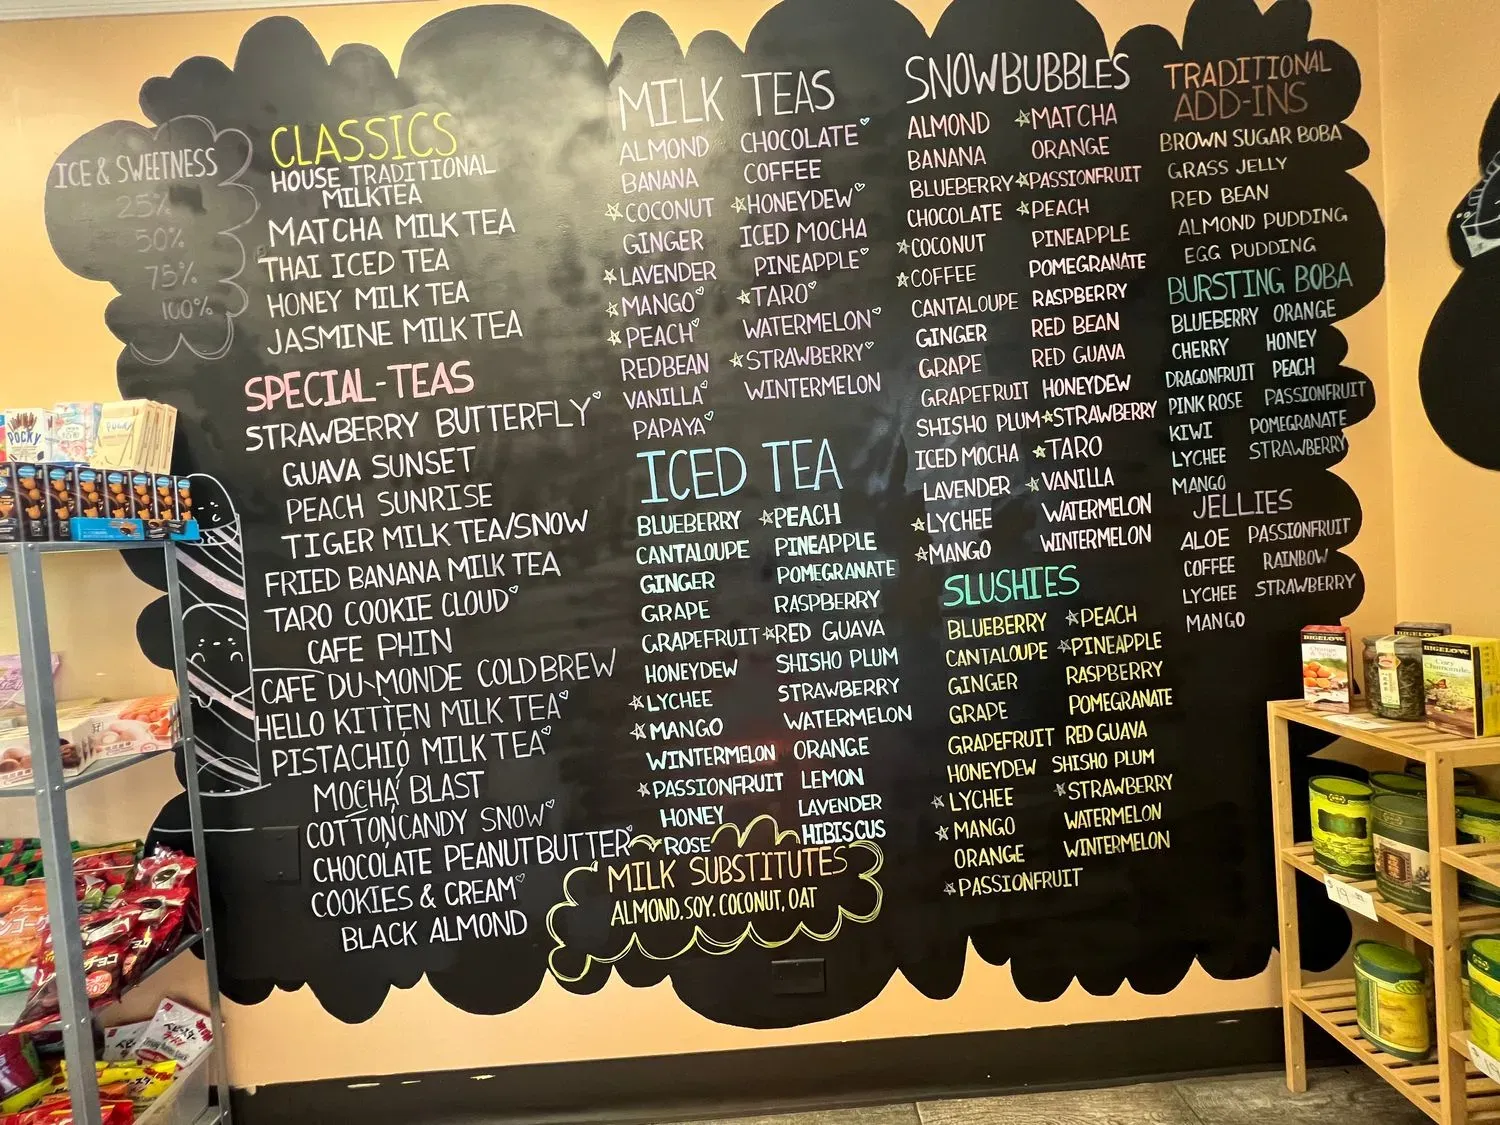 ICE & SWEETNESS
25%
50%
75%
100%
CLASSICS
HOUSE TRADITIONAL
MILKTEA
MATCHA MILK TEA
THAI ICED TEA
HONEY MILK TEA
JASMINE MILK TEA
SPECIAL-TEAS
STRAWBERRY BUTTERFLY
GUAVA SUNSET
PEACH SUNRISE
TIGER MILK TEA/SNOW
FRIED BANANA MILK TEA
TARO COOKIE CLOUD
CAFE PHIN
CAFE DU MONDE COLD BREW
HELLO KITTEN MILK TEA
PISTACHIO MILK TEA
MOCHA BLAST
COTTON CANDY SNOW
CHOCOLATE PEANUT BUTTER
COOKIES & CREAM
BLACK ALMOND
MILK TEAS
ALMOND CHOCOLATE
BANANA COFFEE
COCONUT HONEYDEW
GINGER ICED MOCHA
LAVENDER PINEAPPLE
MANGO TARO
PEACH WATERMELON
REDBEAN STRAWBERRY
VANILLA WINTERMELON
PAPAYA
ICED TEA
BLUEBERRY PEACH
CANTALOUPE PINEAPPLE
GINGER POMEGRANATE
GRAPE RASPBERRY
GRAPEFRUIT RED GUAVA
HONEYDEW SHISHO PLUM
LYCHEE STRAWBERRY
MANGO WATERMELON
WINTERMELON ORANGE
PASSIONFRUIT LEMON
HONEY LAVENDER
ROSE HIBISCUS
MILK SUBSTITUTES
ALMOND, SOY, COCONUT, OAT
SNOWBUBBLES
ALMOND MATCHA
BANANA ORANGE
BLUEBERRY PASSIONFRUIT
CHOCOLATE PEACH
COCONUT PINEAPPLE
COFFEE POMEGRANATE
CANTALOUPE RASPBERRY
GINGER RED BEAN
GRAPE RED GUAVA
GRAPEFRUIT HONEYDEW
SHISHO PLUM STRAWBERRY
ICED MOCHA TARO
LAVENDER VANILLA
LYCHEE WATERMELON
MANGO WINTERMELON
SLUSHIES
BLUEBERRY PEACH
CANTALOUPE PINEAPPLE
GINGER RASPBERRY
GRAPE POMEGRANATE
GRAPEFRUIT RED GUAVA
HONEYDEW SHISHO PLUM
LYCHEE STRAWBERRY
MANGO WATERMELON
ORANGE WINTERMELON
PASSIONFRUIT
TRADITIONAL
ADD-INS
BROWN SUGAR BOBA
GRASS JELLY
RED BEAN
ALMOND PUDDING
EGG PUDDING
BURSTING BOBA
BLUEBERRY ORANGE
CHERRY HONEY
DRAGONFRUIT PEACH
PINK ROSE PASSIONFRUIT
KIWI POMEGRANATE
LYCHEE STRAWBERRY
MANGO
JELLIES
ALOE PASSIONFRUIT
COFFEE RAINBOW
LYCHEE STRAWBERRY
MANGO
POCKY
BIGELOW
BIGELOW
BIGELOW
Cozy
Chamomile